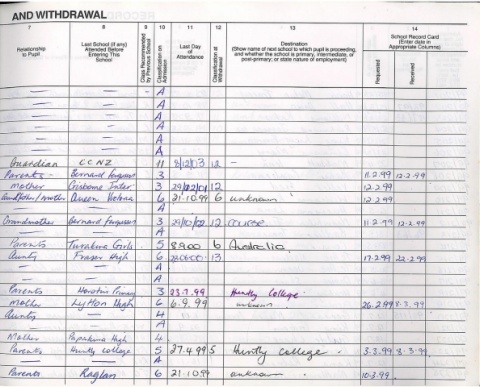 AND WITHDRAWAL
7 8 9 10 11 12 13 14
Relationship to Pupil
Last School (if any) Attended Before Entering This School
Class Recommended by Previous School
Classification on Admission
Last Day of Attendance
Classification at Withdrawal
Destination
(Show name of next school to which pupil is proceeding, and whether the school is primary, intermediate, or post-primary; or state nature of employment)
School Record Card
(Enter date in Appropriate Columns)
Requested
Received
— — - A
— — A
— — A
— — A
— — A
— — A
Guardian CCNZ 11 8/12/13 12 –
Parents Bernard Fergusson 3 11.2.99 12.2.99
Mother Gisborne Inter 3 12 12.2.99
Queen Victoria 6 21.10.99 6 unknown 12.2.99
— — A
Grandmother Bernard Fergusson 3 12 11.2.99 12.2.99
— — A
Parents Turakina Girls 5 6 Australia
Aunty Fraser High 6 13 17.2.99 22.2.99
— — A
— — A
Parents 3 23.7.99 Huntly College
Mother Lytton High 6 6.9.99 unknown 26.2.99 8.3.99
Aunty — 4
— — A
Mother Papakura High 4
Parents Huntly College 5 27.4.99 5 Huntly College 3.3.99 8.3.99
— — A
Parents Raglan 6 21.10.99 unknown 10.3.99